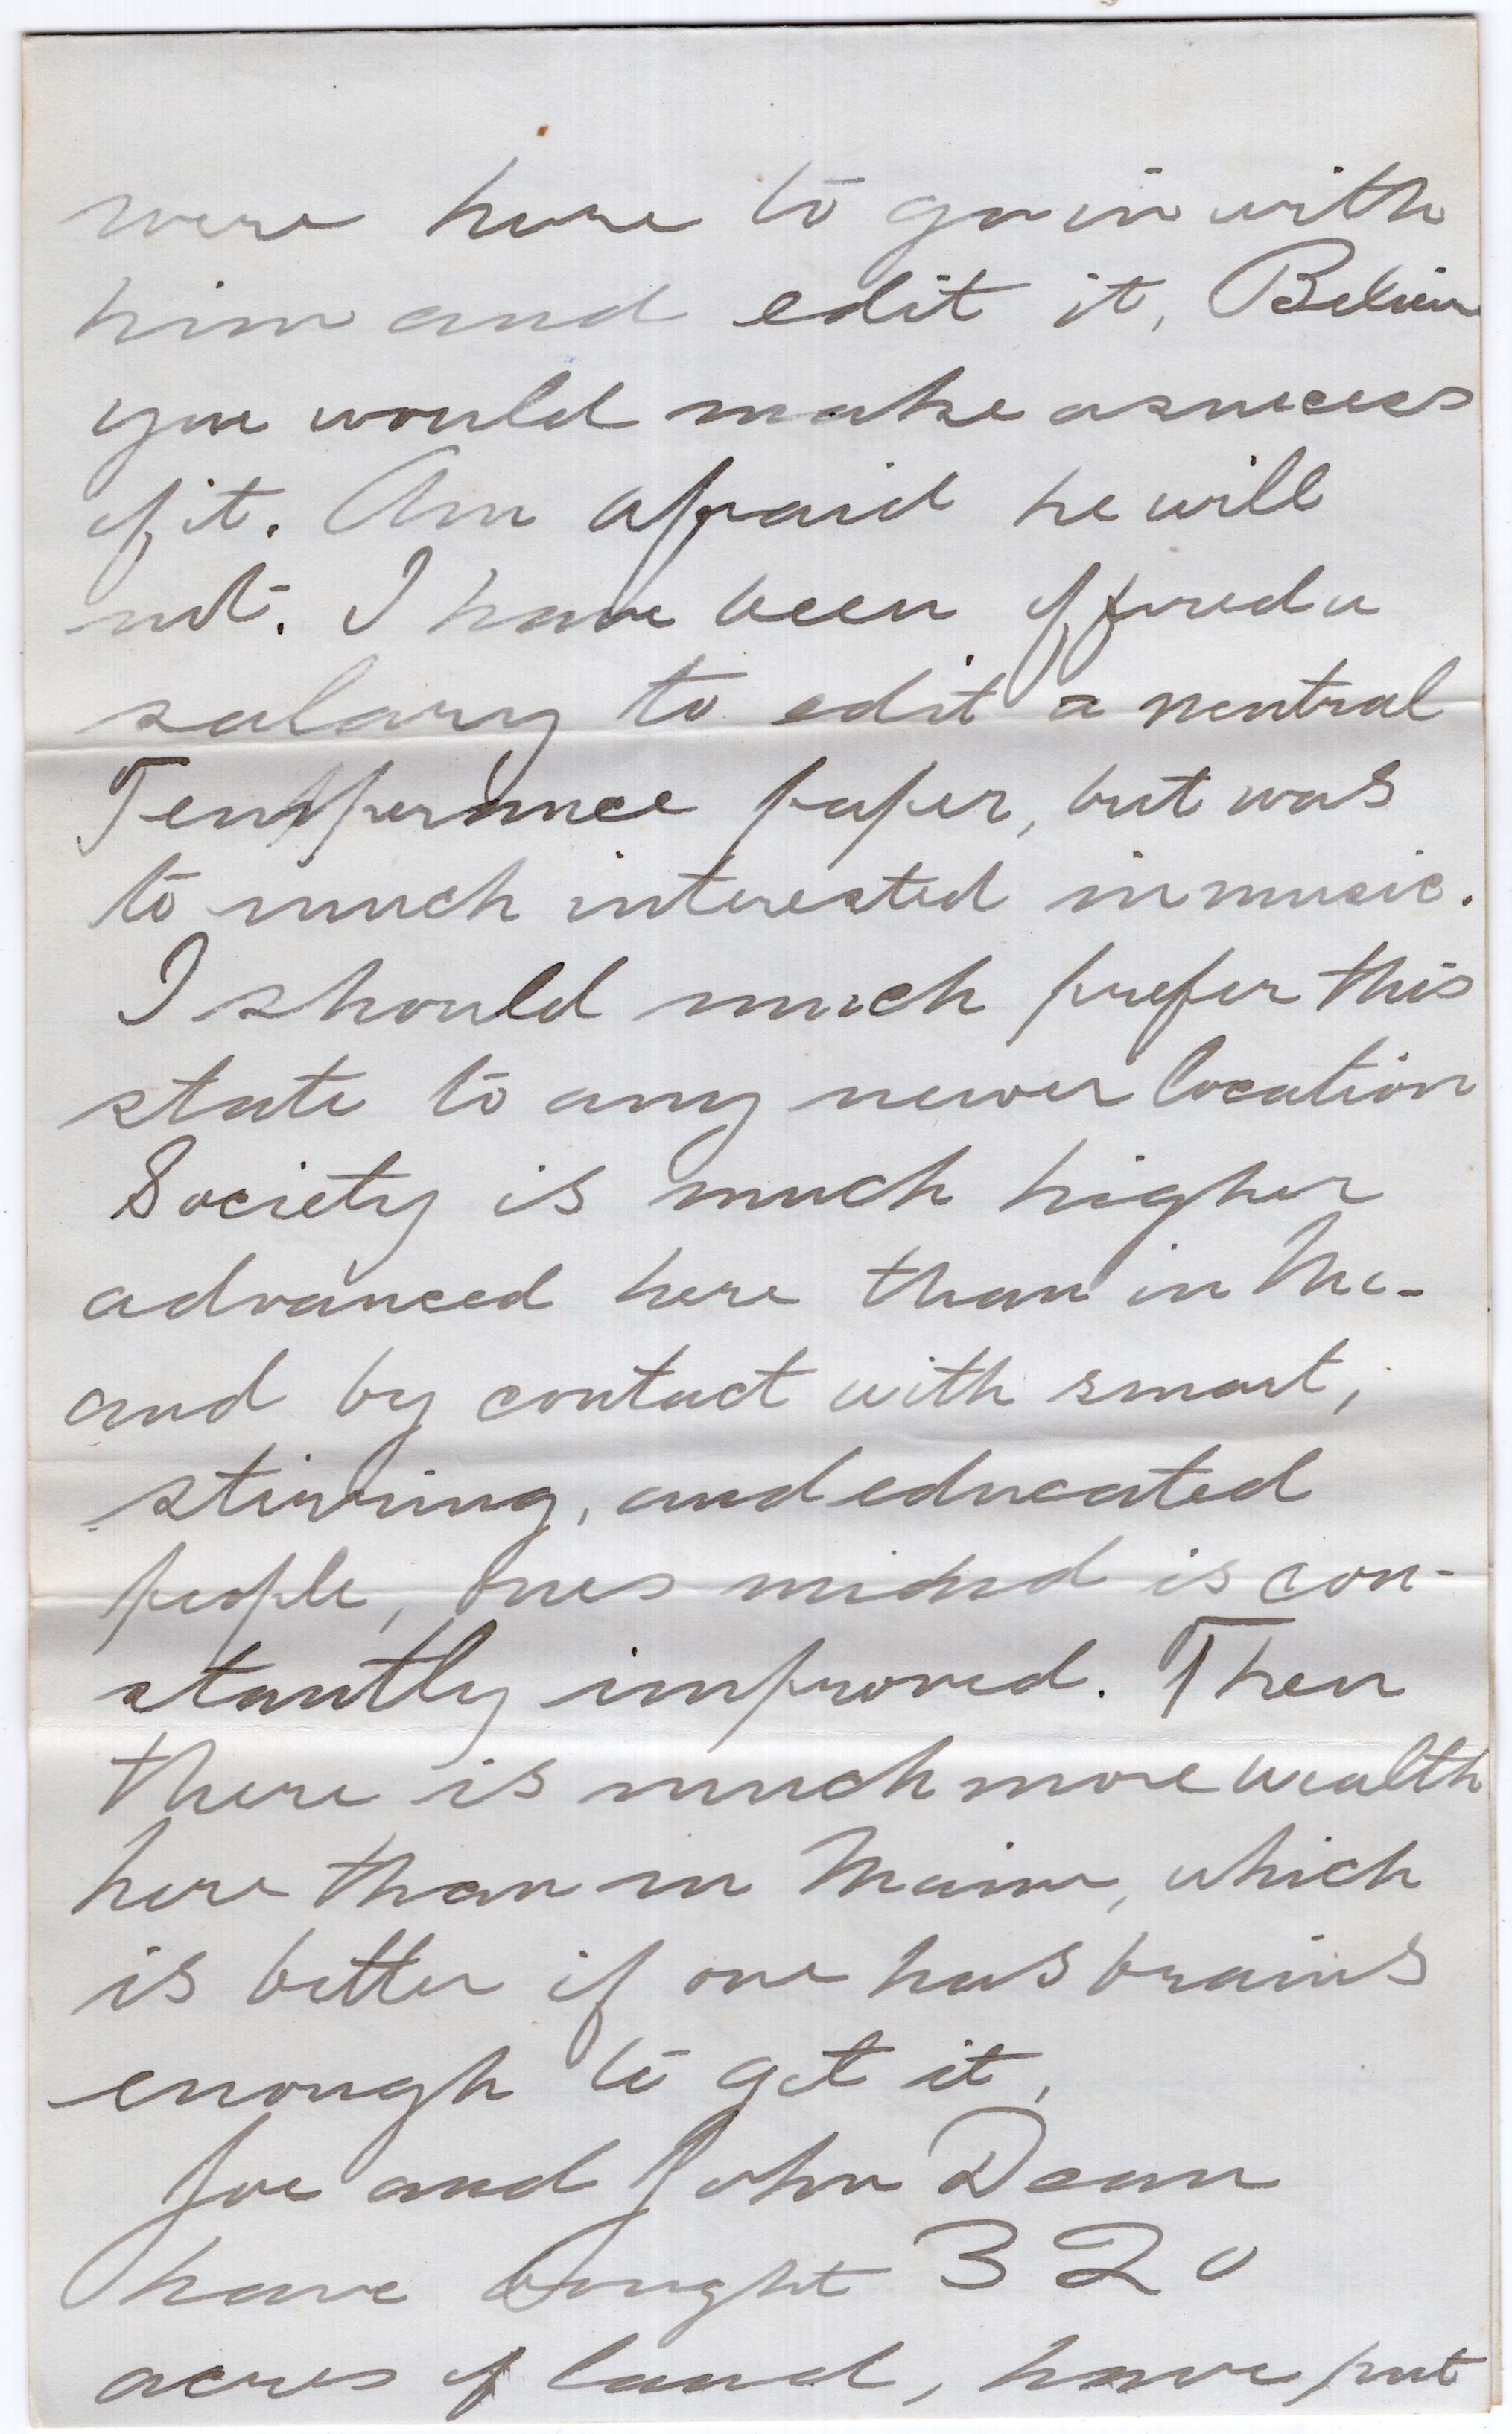 were here to go in with
him and edit it, Believe
you would make a success
of it. Am afraid he will
not. I have been offered a
salary to edit a neutral
Temperance paper, but was
to much interested in music.
I should much prefer this
state to any newer location
Society is much higher
advanced here than in Me-
and by contact with smart,
stirring, and educated
people, ones mind is con-
stantly improved. Then
there is much more wealth
here than in Maine, which
is better if one has brains
enough to get it,
Joe and John Dean
have bought 320
acres of land, have put